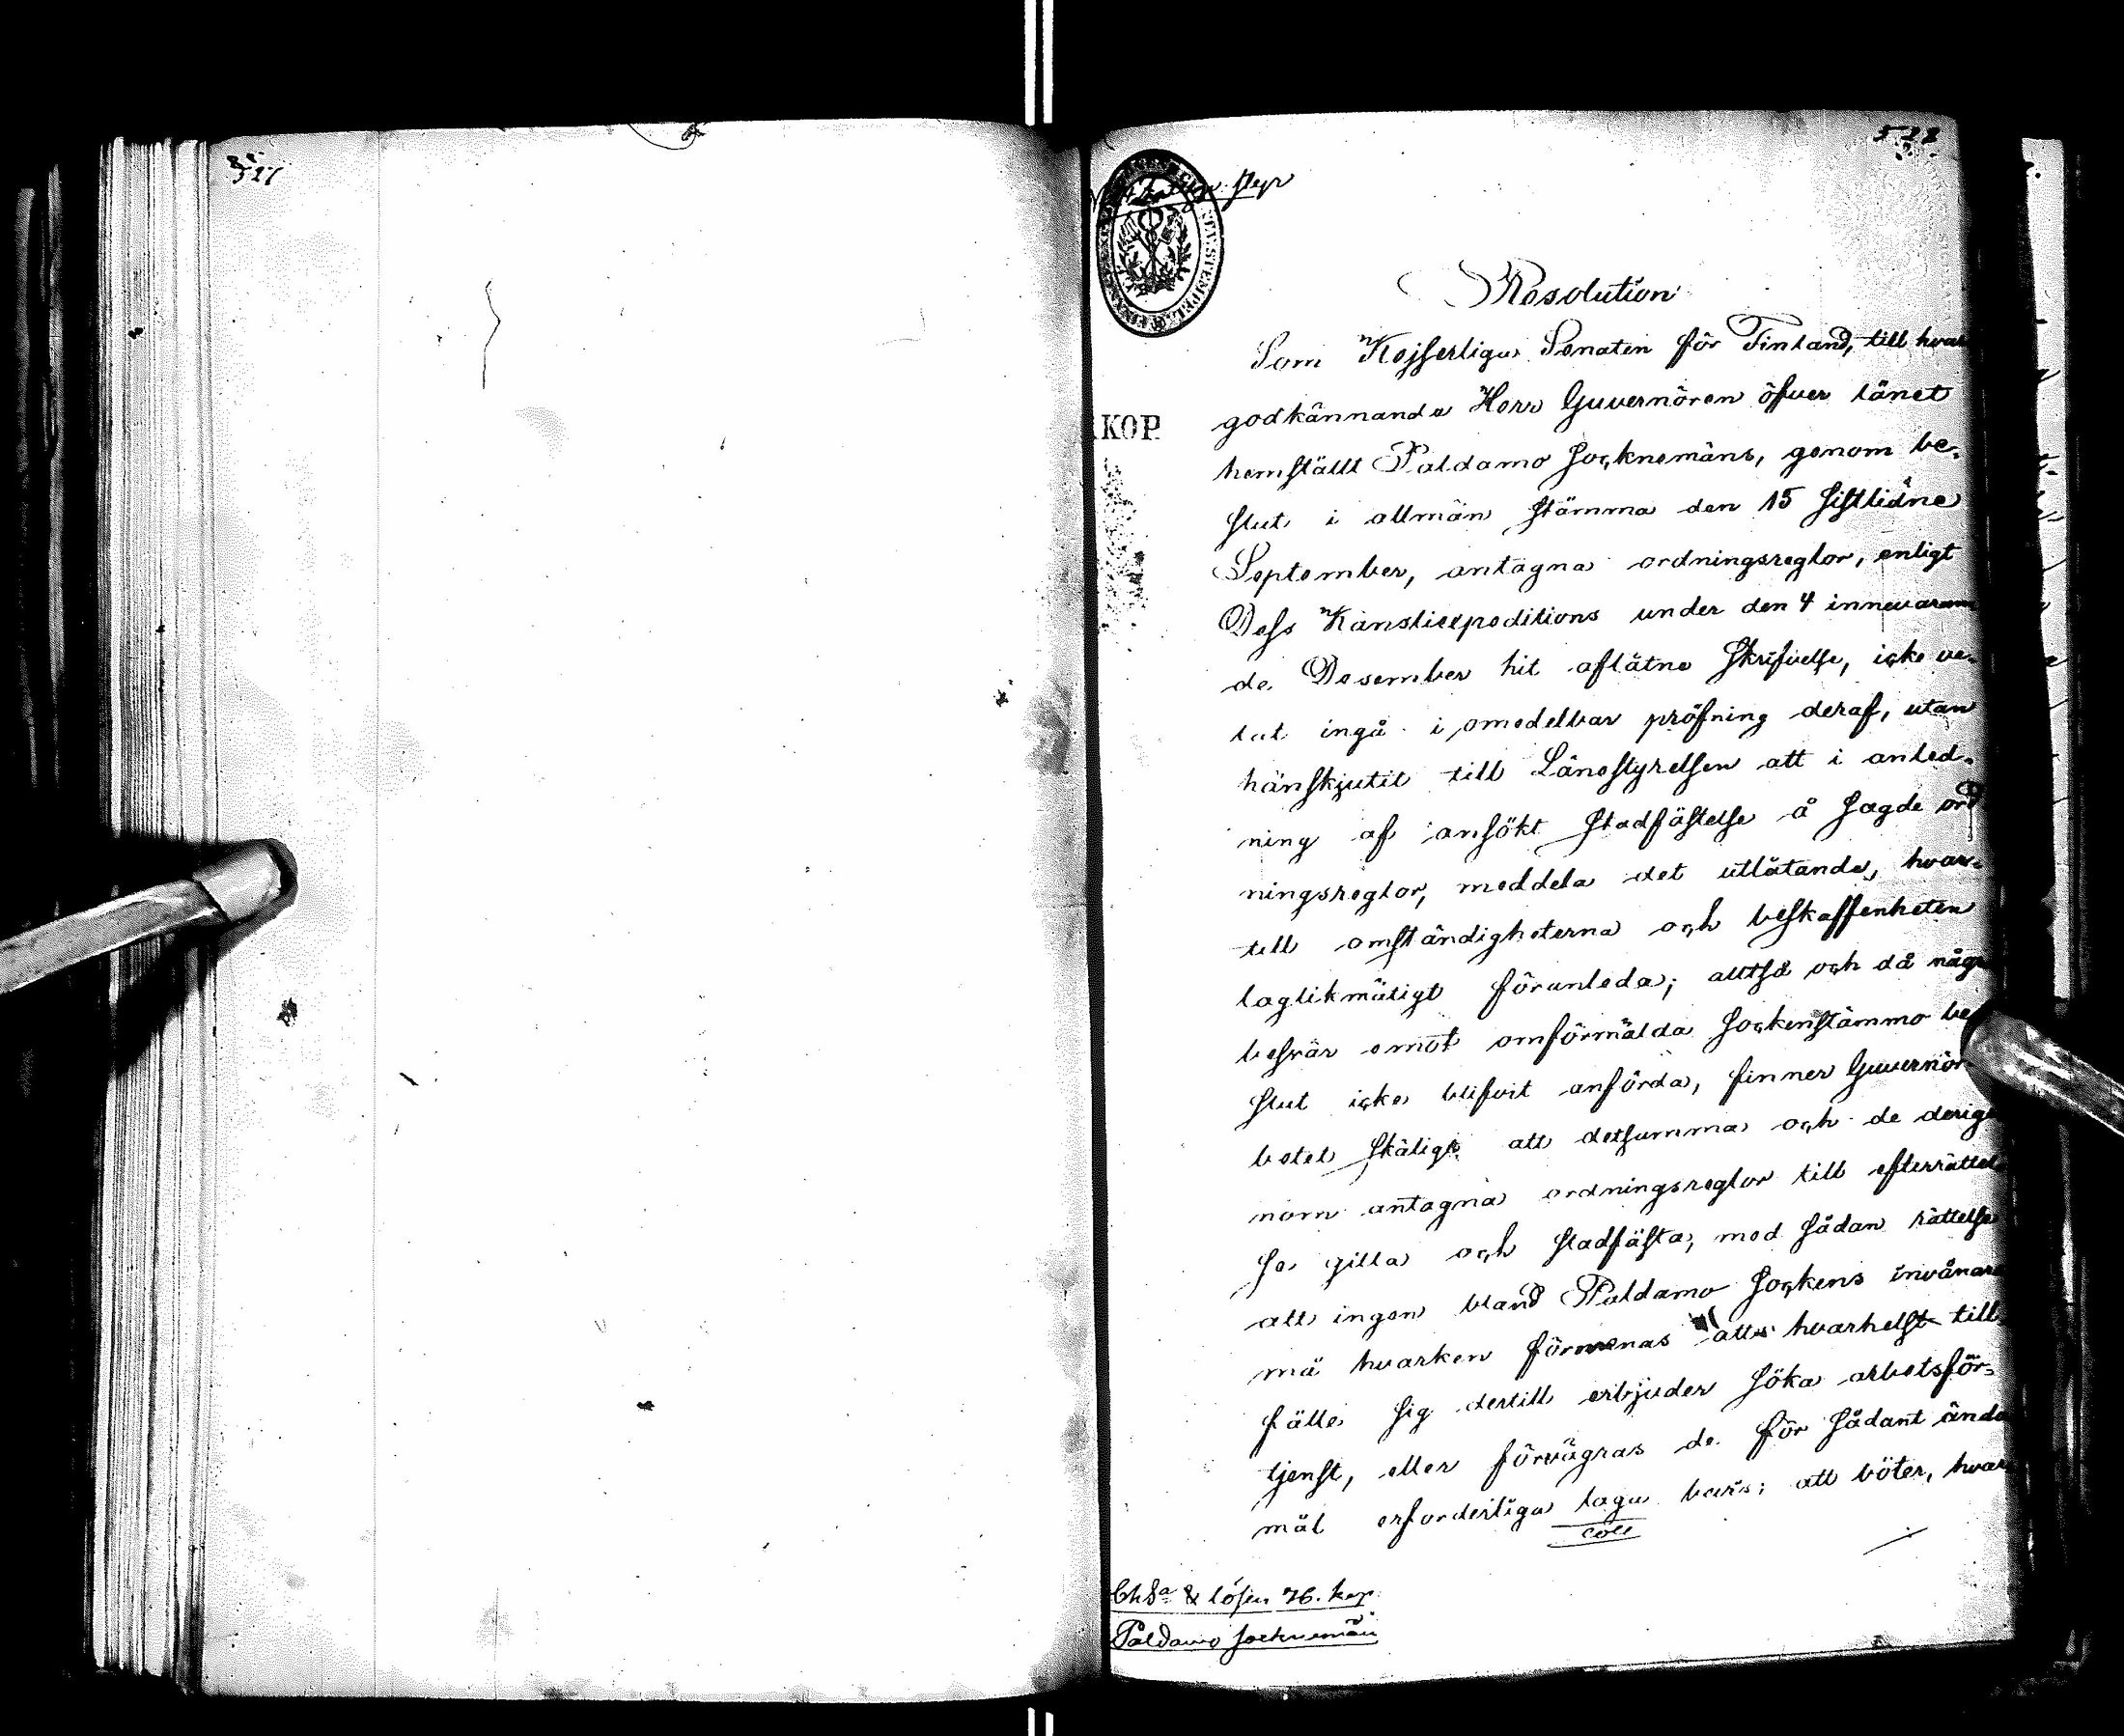 527
528
KOP.
Resolution
Som Kejserliga Senaten för Finland, till hvars
godkännande Herr Guvernören öfver länet
hemställt Paldamo Socknemäns, genom be-
slut i allmän stämma den 15 sistlidne
September, antagna ordningsreglor, enligt
Dess Kansliexpeditions under den 4 innevaran-
de December hit aflätne skrifvelse, icke ve-
lat ingå i omedelbar pröfning deraf, utan
hänskjutit till Länestyrelsen att i anled-
ning af ansökt stadfästelse å sagde ord
ningsreglor, meddela det utlåtande, hvar-
till omständigheterna och beskaffenheten
laglikmätigt föranleda; alltså och då några
besvär emot omförmälda Sockenstämmo be
slut icke blifvit anförda, finner Guvernörs
betet skäligt att detsamma och de derige
nom antagna ordningsreglor till efterrättel
se gilla och stadfästa, med sådan rättelse
att ingen bland Paldamo Sockens invånare
må hvarken förmenas att hvarhelst till-
fälle sig dertill erbjuder söka arbetsför-
tjenst, eller förvägras de för sådant ända
mål erforderliga laga bevis; att böter, hvar
coll
ChSa & lösen 76. kop
Paldamo Socknemän